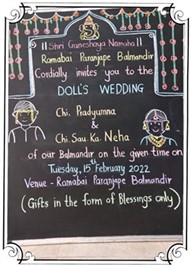 || Shri Ganeshaya Namaha ||
Ramabai Paranjape Balmandir
Cordially invites you to the
DOLL'S WEDDING
Chi. Pradyumna
&
Chi. Sau. Ka. Neha
of our Balmandir on the given time on
Tuesday, 15th February 2022
Venue - Ramabai Paranjape Balmandir
(Gifts in the form of Blessings only)